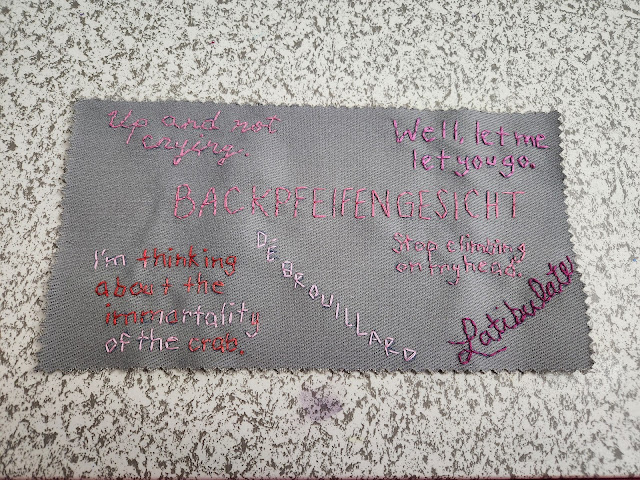 Up and not
crying.
Well, let me
let you go.
BACKPFEIFENGESICHT
I'm thinking
about the
immortality
of the crab.
DÉBROUILLARD
Stop climbing
on my head.
Latibulate